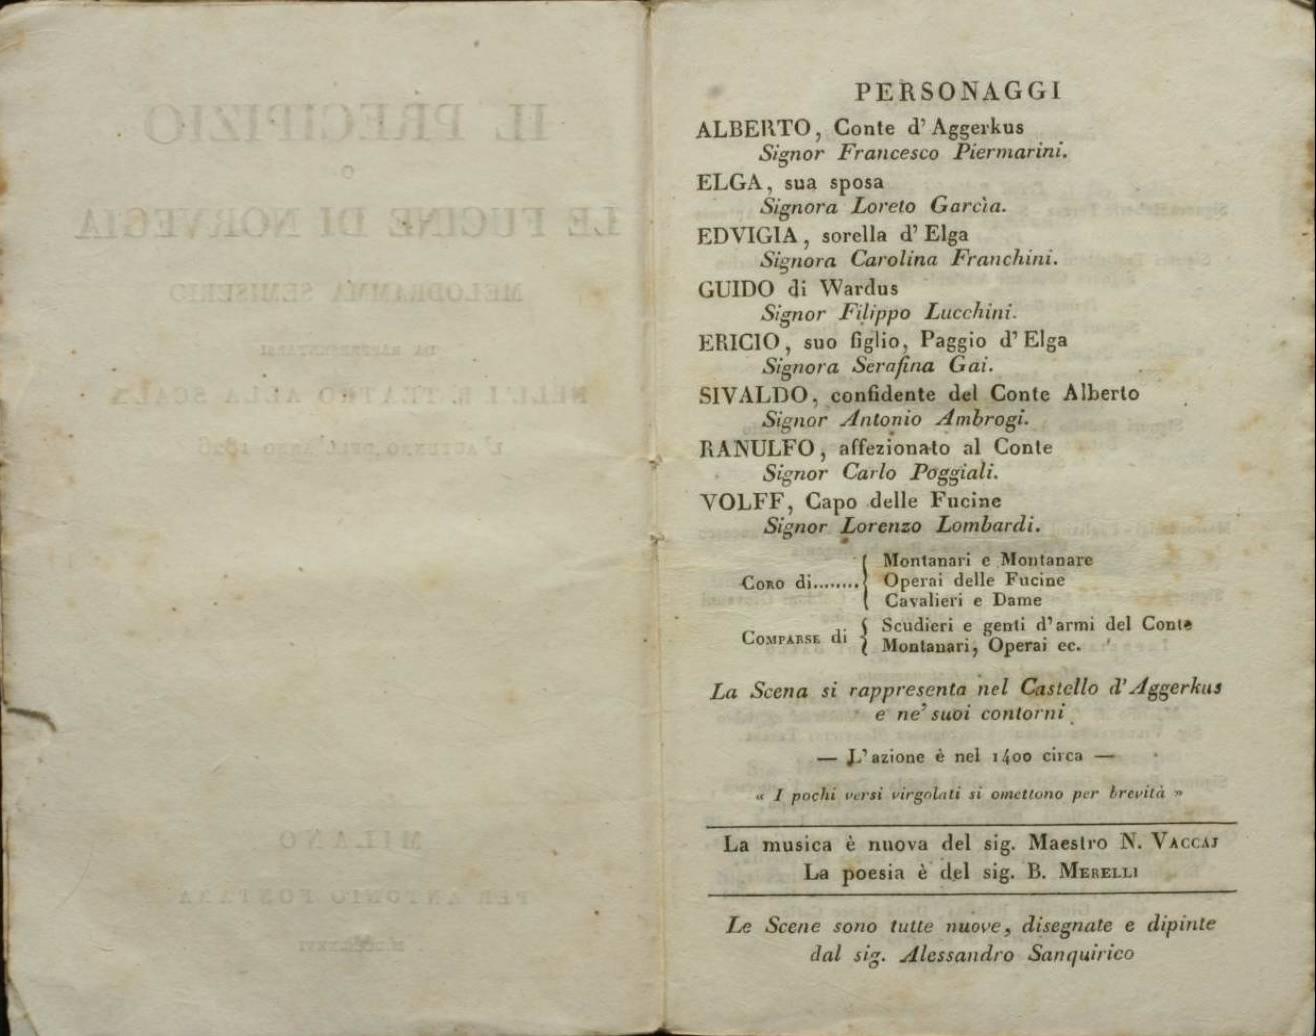 IL PRECIPIZIO
O
LE FUCINE DI NORVEGIA
MELODRAMMA SEMISERIO
DA RAPPRESENTARSI
NELL'I. R. TEATRO ALLA SCALA
L'AUTUNNO DELL'ANNO 1826
MILANO
PER ANTONIO FONTANA
PERSONAGGI
ALBERTO, Conte d'Aggerkus
Signor Francesco Piermarini.
ELGA, sua sposa
Signora Loreto Garcìa.
EDVIGIA, sorella d'Elga
Signora Carolina Franchini.
GUIDO di Wardus
Signor Filippo Lucchini.
ERICIO, suo figlio, Paggio d'Elga
Signora Serafina Gai.
SIVALDO, confidente del Conte Alberto
Signor Antonio Ambrogi.
RANULFO, affezionato al Conte
Signor Carlo Poggiali.
VOLFF, Capo delle Fucine
Signor Lorenzo Lombardi.
Montanari e Montanare
CORO di........ Operai delle Fucine
Cavalieri e Dame
Scudieri e genti d'armi del Conte
COMPARSE di
Montanari, Operai ec.
La Scena si rappresenta nel Castello d'Aggerkus
e ne' suoi contorni.
— L'azione è nel 1400 circa —
« I pochi versi virgolati si omettono per brevità »
La musica è nuova del sig. Maestro N. VACCAJ
La poesia è del sig. B. MERELLI
Le Scene sono tutte nuove, disegnate e dipinte
dal sig. Alessandro Sanquirico